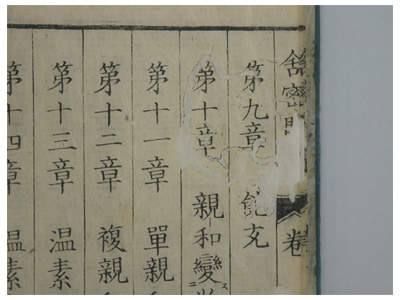 舎密 卷
第九章 飽
第十章 親和變
第十一章 單親
第十二章 複親
第十三章 温素
第十四章 温素